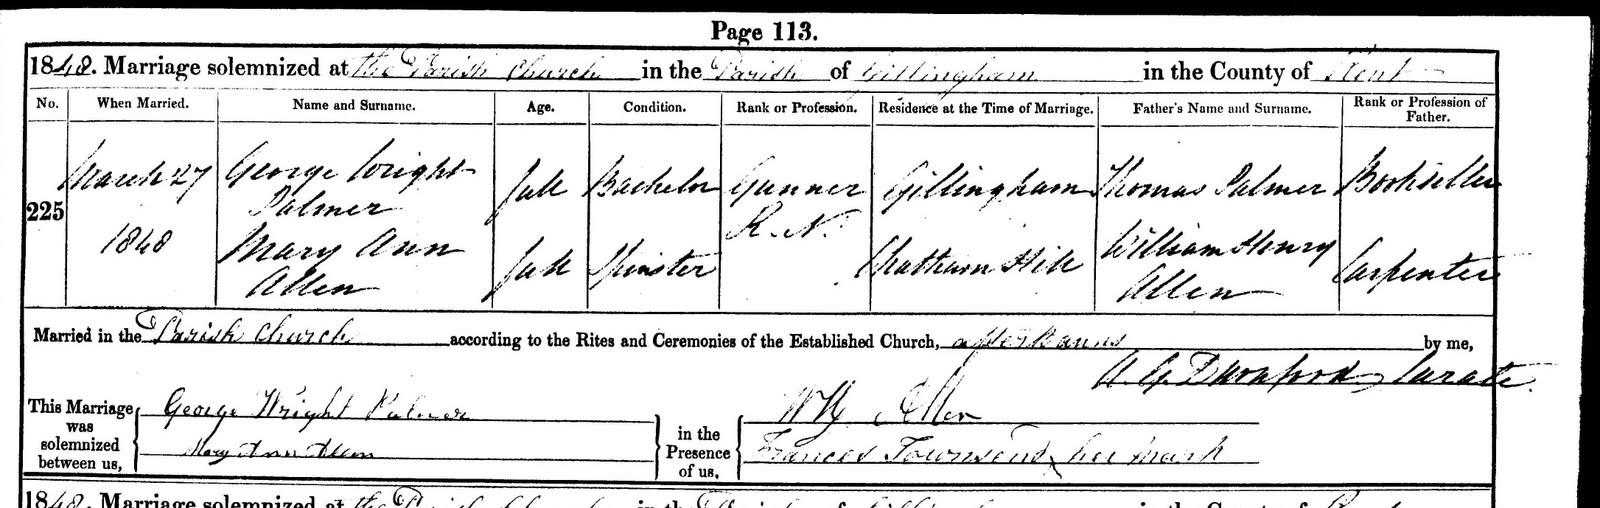 Page 113.
1848. Marriage solemnized at the Parish Church in the Parish of Gillingham in the County of Kent
No. When Married. Name and Surname. Age. Condition. Rank or Profession. Residence at the Time of Marriage. Father's Name and Surname. Rank or Profession of Father.
225 March 27 1848 George Wright Palmer full Bachelor Gunner R.N. Gillingham Thomas Palmer Bookseller
Mary Ann Allen full Spinster Chatham Hill William Henry Allen Carpenter
Married in the Parish Church according to the Rites and Ceremonies of the Established Church, after Banns by me,
Curate
This Marriage was solemnized between us, George Wright Palmer
Mary Ann Allen
in the Presence of us, WH Allen
Frances Townsend X her mark
1848. Marriage solemnized at the Parish Church in the Parish of Gillingham in the County of Kent